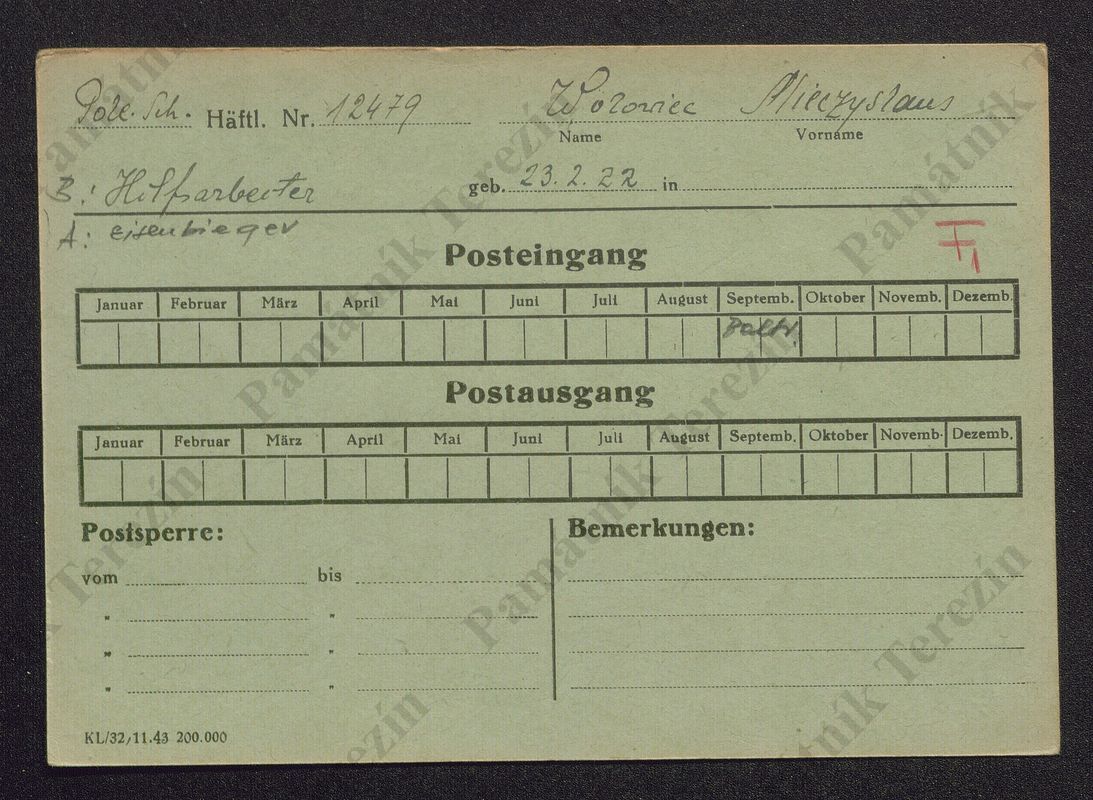 Pole. Sch. Häftl. Nr. 12479 Wolowiec Mieczyslaus
Name Vorname
B: Hilfsarbeiter geb. 23.2.22 in
A: eisenbieger
F1
Posteingang
Januar Februar März April Mai Juni Juli August Septemb. Oktober Novemb. Dezemb.
Postausgang
Januar Februar März April Mai Juni Juli August Septemb. Oktober Novemb. Dezemb.
Postsperre: Bemerkungen:
vom bis
" "
" "
" "
KL/32/11.43 200.000
Památník Terezín